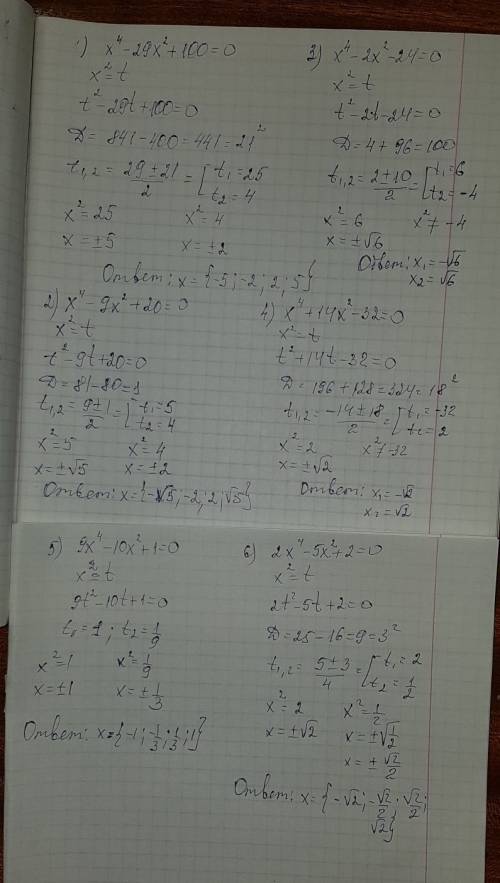 1) x⁴-29x²+100=0
x²=t
t²-29t+100=0
D=841-400=441=21²
t₁,₂=(29±21)/2=[t₁=25
t₂=4
x²=25 x²=4
x=±5 x=±2
Ответ: x={-5;-2;2;5}
2) x⁴-9x²+20=0
x²=t
t²-9t+20=0
D=81-80=1
t₁,₂=(9±1)/2=[t₁=5
t₂=4
x²=5 x²=4
x=±√5 x=±2
Ответ: x={-√5;-2;2;√5}
3) x⁴-2x²-24=0
x²=t
t²-2t-24=0
D=4+96=100
t₁,₂=(2±10)/2=[t₁=6
t₂=-4
x²=6 x²≠-4
x=±√6
Ответ: x₁=-√6
x₂=√6
4) x⁴+14x²-32=0
x²=t
t²+14t-32=0
D=196+128=324=18²
t₁,₂=(-14±18)/2=[t₁=-32
t₂=2
x²=2 x²≠-32
x=±√2
Ответ: x₁=-√2
x₂=√2
5) 9x⁴-10x²+1=0
x²=t
9t²-10t+1=0
t₁=1; t₂=1/9
x²=1 x²=1/9
x=±1 x=±1/3
Ответ: x={-1;-1/3;1/3;1}
6) 2x⁴-5x²+2=0
x²=t
2t²-5t+2=0
D=25-16=9=3²
t₁,₂=(5±3)/4=[t₁=2
t₂=1/2
x²=2 x²=1/2
x=±√2 x=±√(1/2)
x=±√2/2
Ответ: x={-√2;-√2/2;√2/2;
√2}